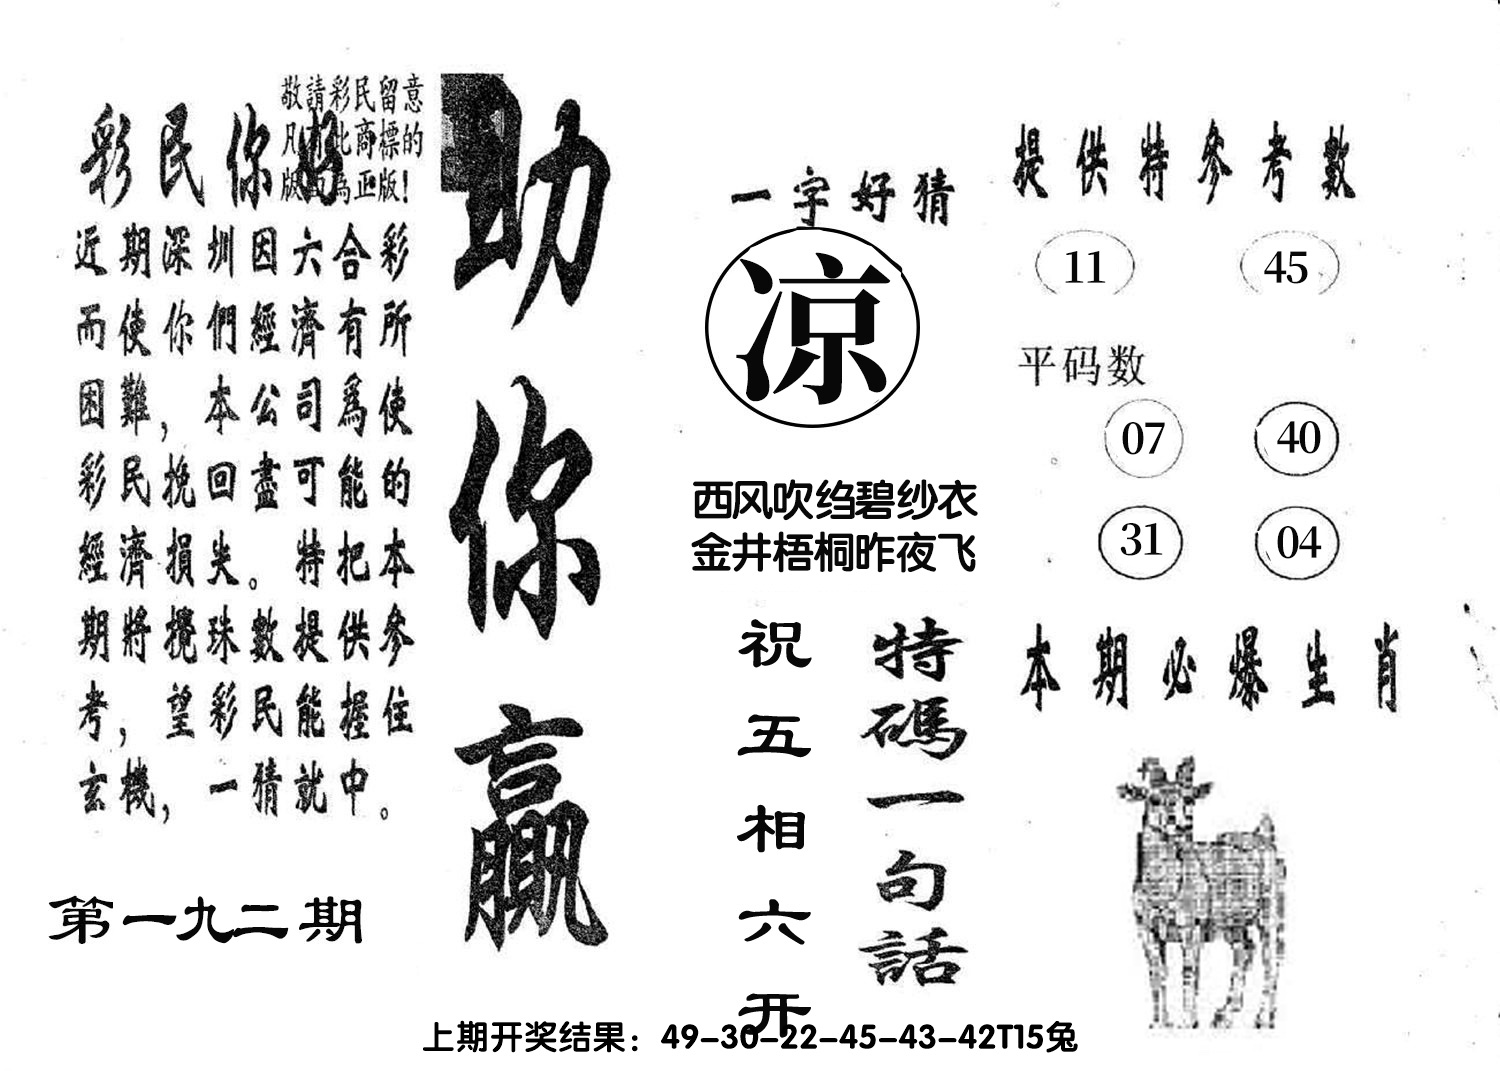 敬請彩民留意
凡有此商標的
版面為正版!
彩民你好
近期深圳因六合彩
而使你們經濟有所
困難，本公司爲使
彩民挽回盡可能的
經濟損失。特把本
期將攪珠數提供參
考，望彩民能握住
玄機，一猜就中。
第一九二期
助你贏
一字好猜
凉
西风吹绉碧纱衣
金井梧桐昨夜飞
特碼一句話
祝五相六开
提供特參考數
11 45
平码数
07 40
31 04
本期必爆生肖
上期开奖结果：49-30-22-45-43-42T15兔